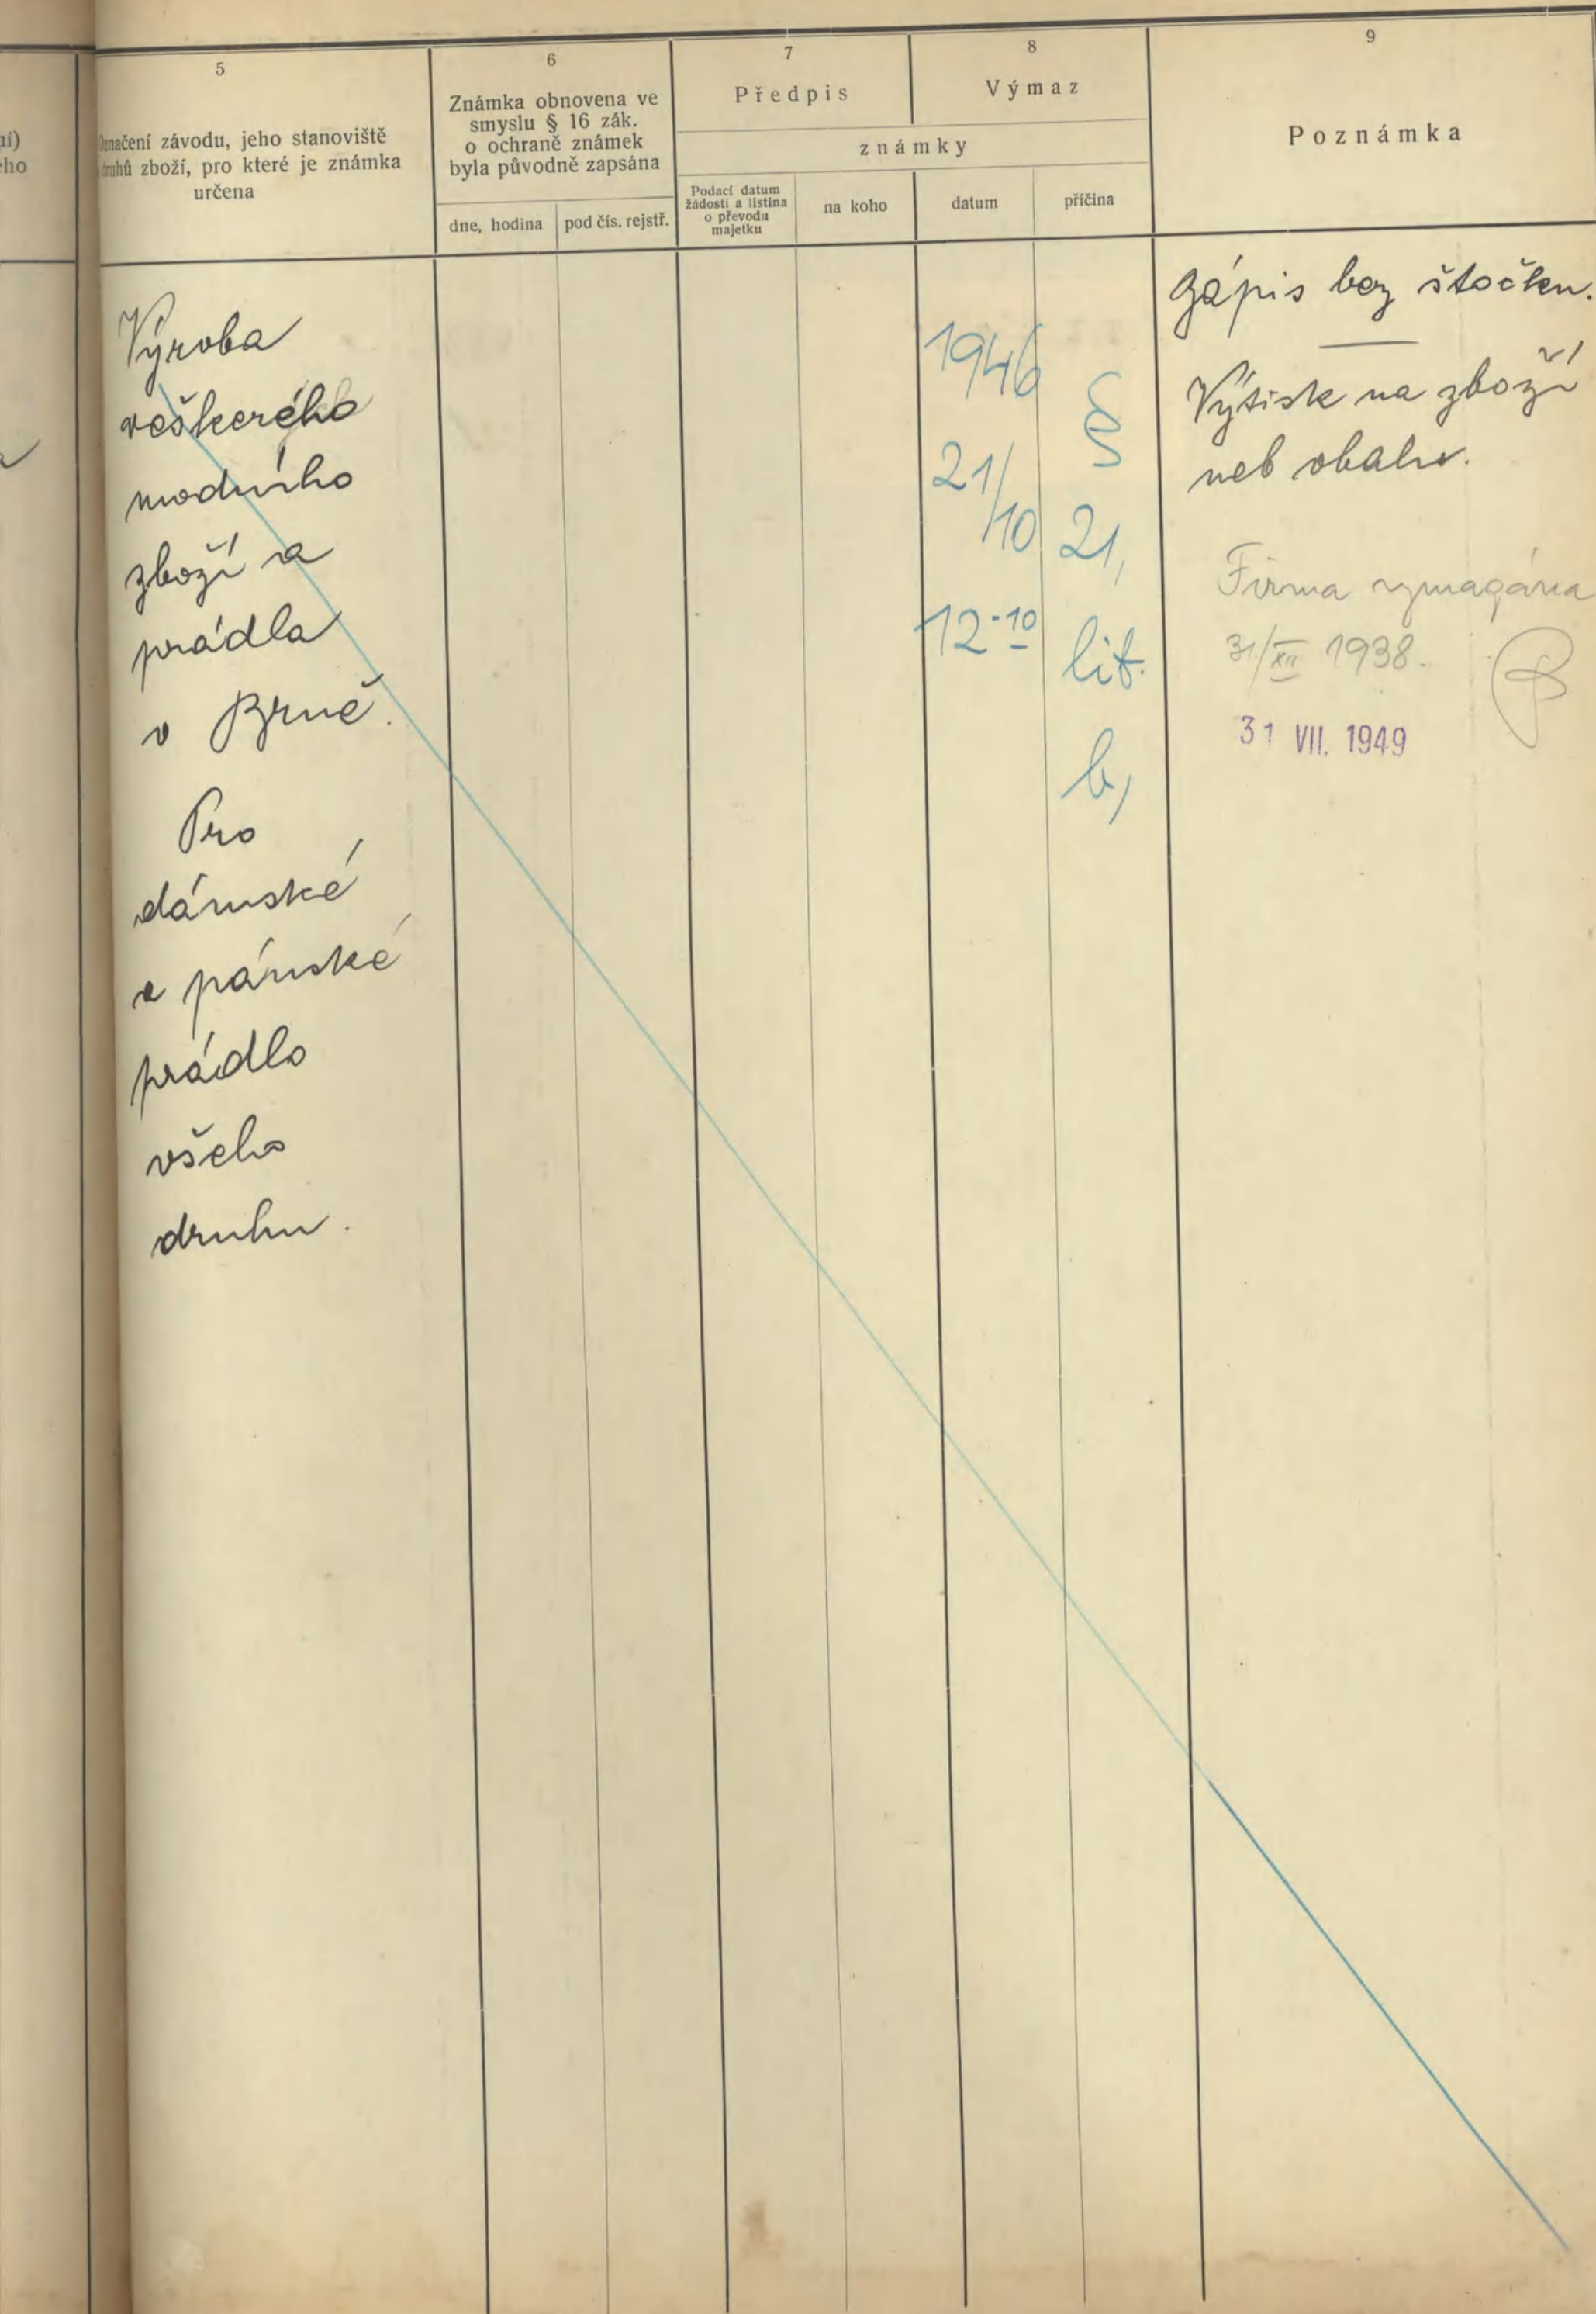 5
Označení závodu, jeho stanoviště
druhů zboží, pro které je známka
určena
6
Známka obnovena ve
smyslu § 16 zák.
o ochraně známek
byla původně zapsána
dne, hodina
pod čís. rejstř.
7
Předpis
8
Výmaz
známky
Podací datum
žádosti a listina
o převodu
majetku
na koho
datum
příčina
9
Poznámka
ní)
ho
Výroba
veškerého
modního
zboží a
prádla
v Brně.
Pro
dámské
a pánské
prádlo
všeho
druhu.
1946
21/
/10
12-10
§
21,
lit.
b,
Zápis bez štočku.
Výtisk na zboží
neb obalu.
Firma vymazána
31/XII 1938.
31 VII. 1949